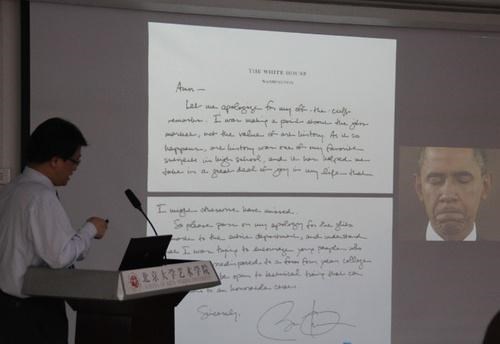 THE WHITE HOUSE
WASHINGTON
Ann —
Let me apologize for my off-the-cuff
remarks. I was making a point about the jobs
market, not the value of art history. As it so
happens, art history was one of my favorite
subjects in high school, and it has helped me
take in a great deal of joy in my life that
I might otherwise have missed.
So please pass on my apology for the glib
remark to the entire department, and understand
I was trying to encourage young people who
predisposed to a four year college
be open to technical training that can
to an honorable career.
Sincerely,
北京大学艺术学院